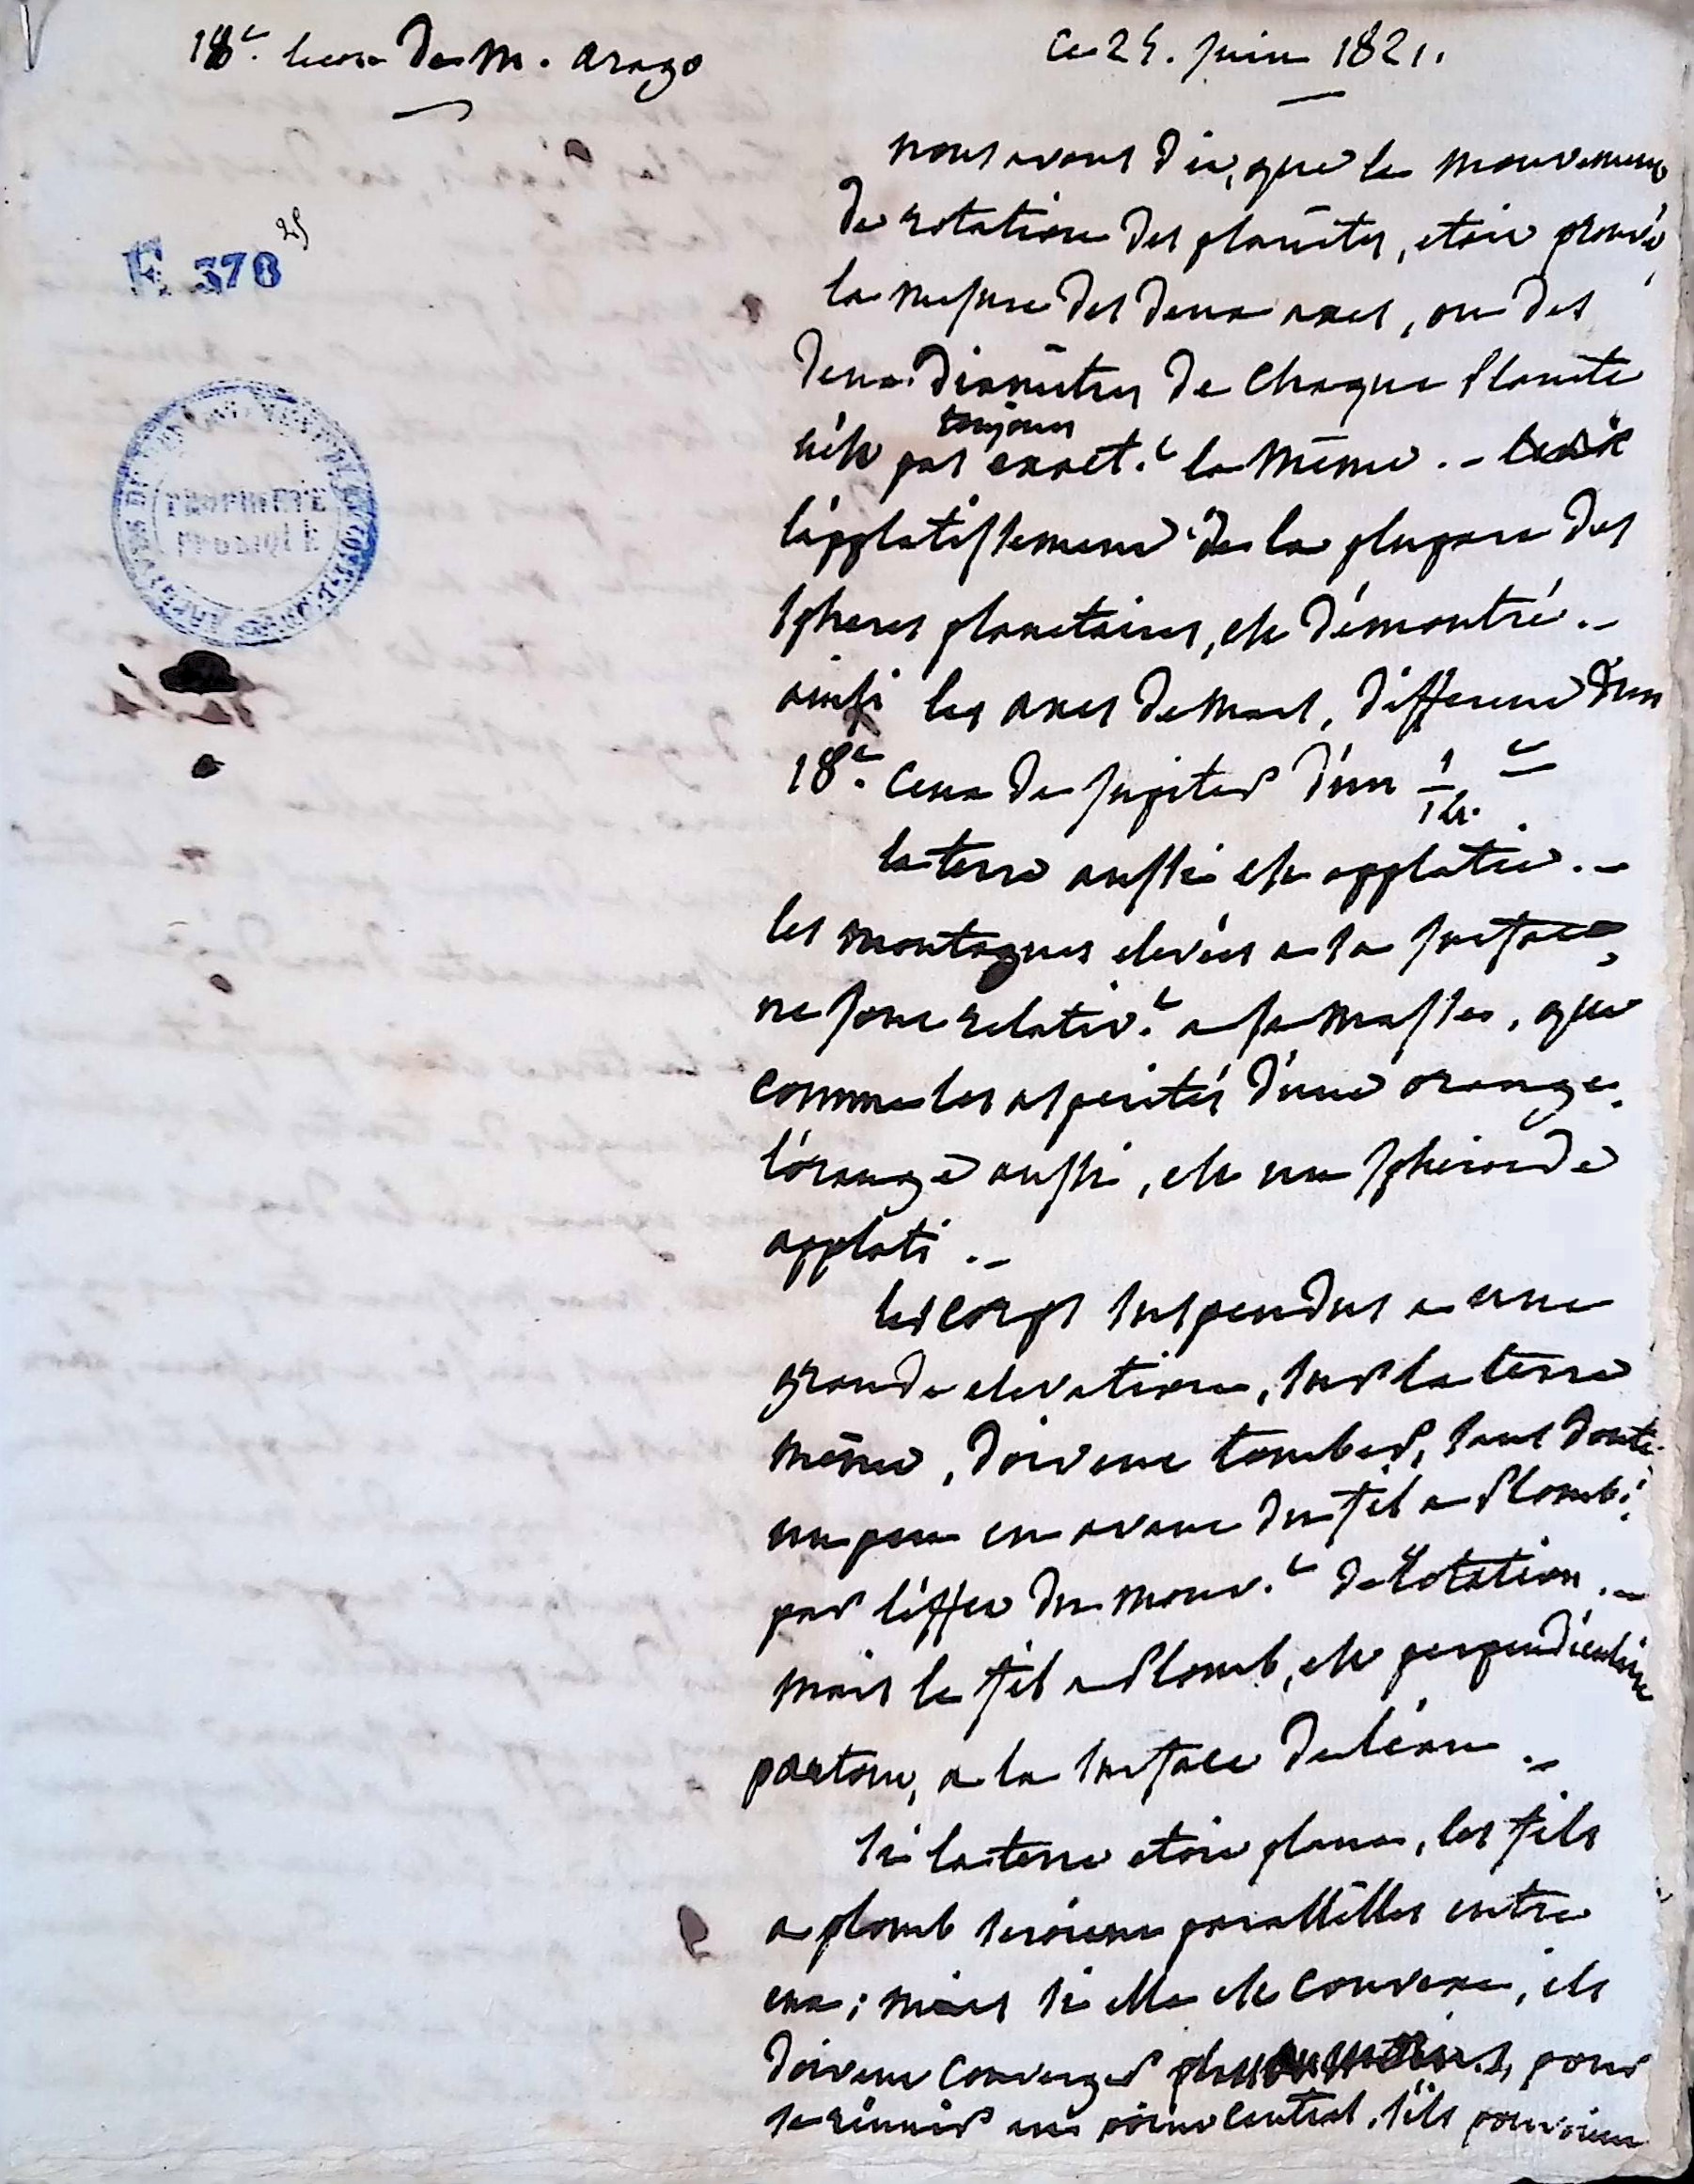 18e. lecon de M. arago
ce 25. juin 1821.
nous avons dit, que le mouvement
de rotation des planètes, etoit prouvé
la mesure des deux axes, ou des
deux diamètres de chaque planete
n'est pas toujours exact.t la même. -
l'applatissement de la plupart des
spheres planetaires, est démontré. -
ainsi les axes de mars, different d'un
18e. ceux de jupiter d'un 1/14. e
la terre aussi est applatie. -
les montagnes elevées a sa surface,
ne sont relativ.t a sa masse, que
comme les asperités d'une orange.
l'orange aussi, est un spheroide
applati. -
les corps suspendus a une
grande elevation, sur la terre
même, doivent tomber, sans doute
un peu en avant du fil a plomb;
par l'effet du mouv.t de rotation. -
mais le fil a plomb, est perpendiculaire
partout, a la surface de l'eau. -
si la terre etoit plane, les fils
a plomb seroient parallèlles entre
eux; mais si elle est convexe, ils
doivent converger pour
se réunir au point central, s'ils pouvoient
E 378
25
PROPRIÉTÉ
PUBLIQUE